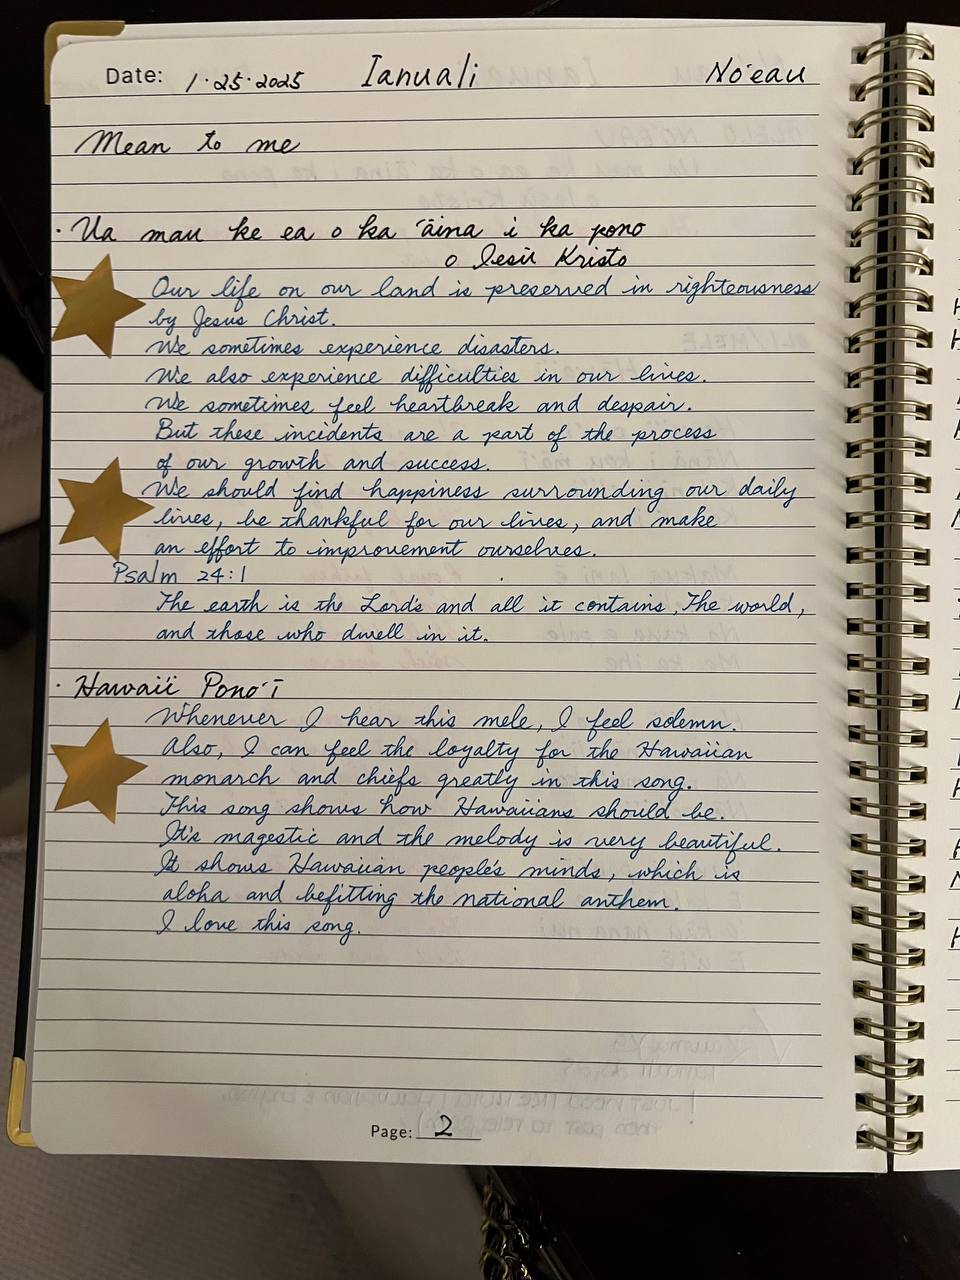 Date: 1·25·2025 Ianuali No'eau
Mean to me
· Ua mau ke ea o ka 'āina i ka pono
o Iesū Kristo
Our life on our land is preserved in righteousness
by Jesus Christ.
We sometimes experience disasters.
We also experience difficulties in our lives.
We sometimes feel heartbreak and despair.
But these incidents are a part of the process
of our growth and success.
We should find happiness surrounding our daily
lives, be thankful for our lives, and make
an effort to improvement ourselves.
Psalm 24:1
The earth is the Lord's and all it contains, The world,
and those who dwell in it.
· Hawai'i Pono'ī
Whenever I hear this mele, I feel solemn.
Also, I can feel the loyalty for the Hawaiian
monarch and chiefs greatly in this song.
This song shows how Hawaiians should be.
It's magestic and the melody is very beautiful.
It shows Hawaiian people's minds, which is
aloha and befitting the national anthem.
I love this song.
Page: 2